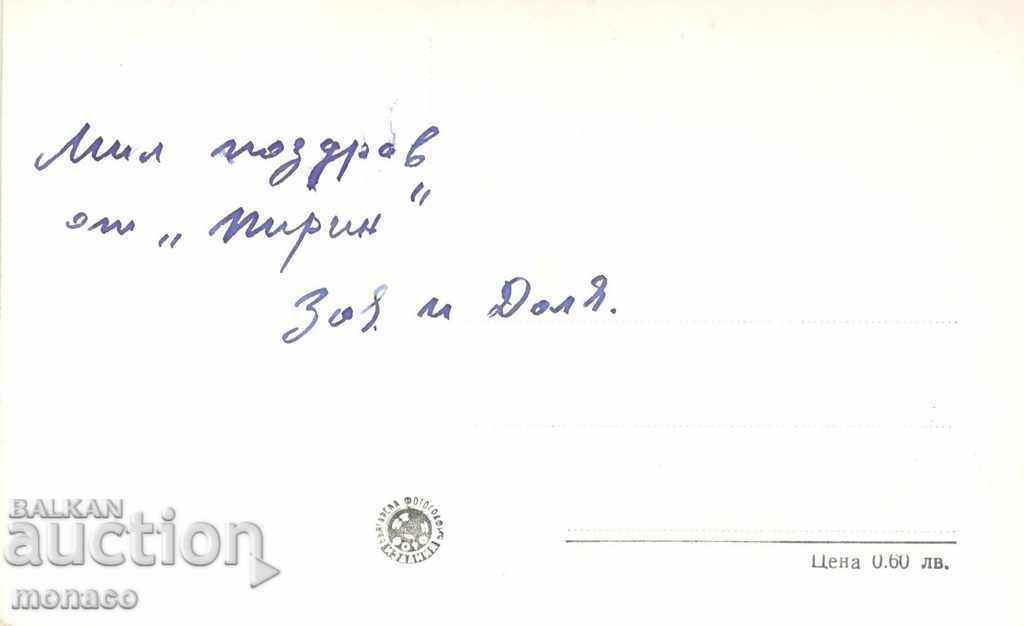 Мил поздрав
от „Пирин"
Зоя и Доля.
БЪЛГАРСКА ФОТОГРАФИЯ
Цена 0.60 лв.
BALKAN
auction
monaco